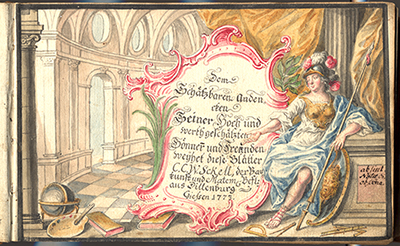 Dem
Schätzbaren Anden,
cken
Seiner Hoch und
werthgeschätzten
Gönner und Freunden
weyhet diese Blätter
C.C.W. Sckell, der Bau
kunst und Matem. Befl:
aus Dillenburg
Giessen 1777.